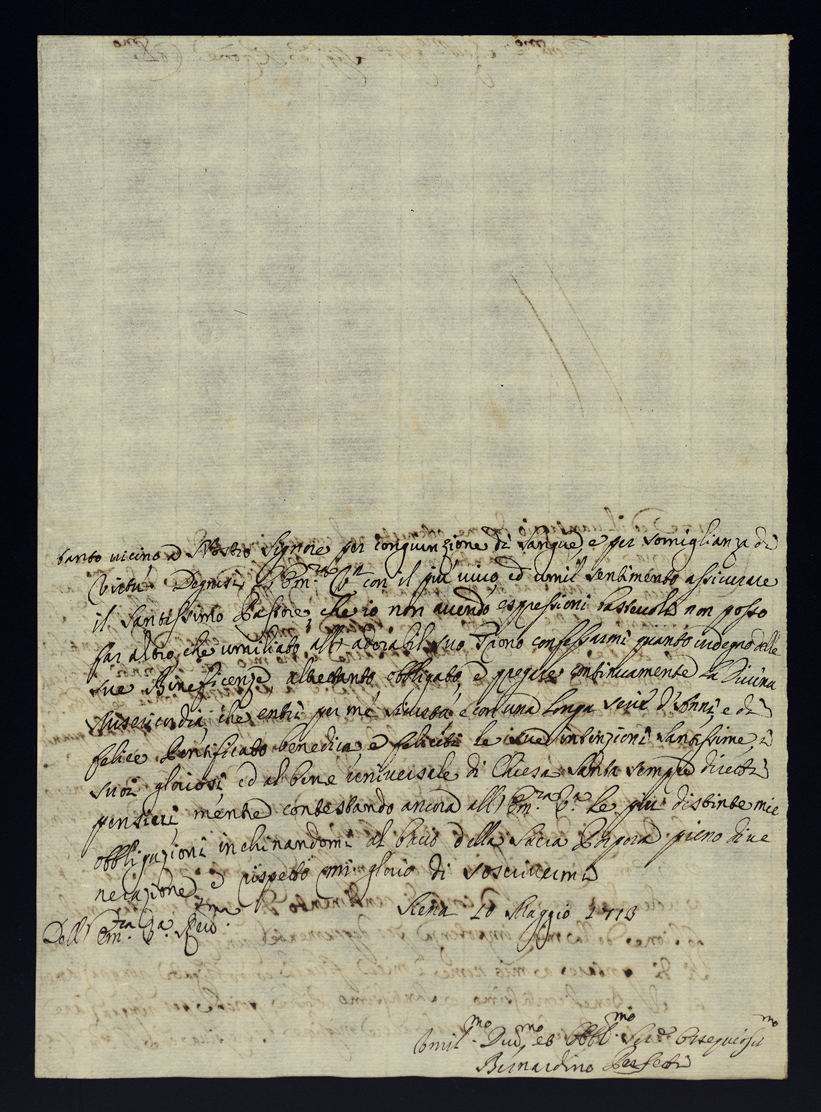 tanto vicino a Nostro Signore per congiunzione di sangue, e per somiglianza di
Virtù. Degnisi l'Em.za V.a con il più vivo ed umil sentimento assicurare
il Santissimo Pastore, che io non avendo espressioni bastevoli non posso
far altro, che umiliato all' adorabil suo Trono confessarmi quanto indegno delle
sue Beneficenze altrettanto obbligato, e pregare continuamente la Divina
Misericordia che entri per me e con una longa serie d'Anni, e di
felice Pontificato benedica, e feliciti le sue intenzioni santissime, i
suoi gloriosi, ed al bene universale di Chiesa Santa sempre diretti
pensieri, mentre contestando ancora all' Em.za V.a le più distinte mie
obbligazioni inchinandomi al bacio della Sacra Porpora pieno di ve
nerazione, e rispetto mi glorio di soscrivermi
Siena 10 Maggio 1713
Dell' Em.za V.a
Umil.mo Div.mo ed Obbl.mo Ser.e Ossequiosis.mo
Bernardino Perfetti